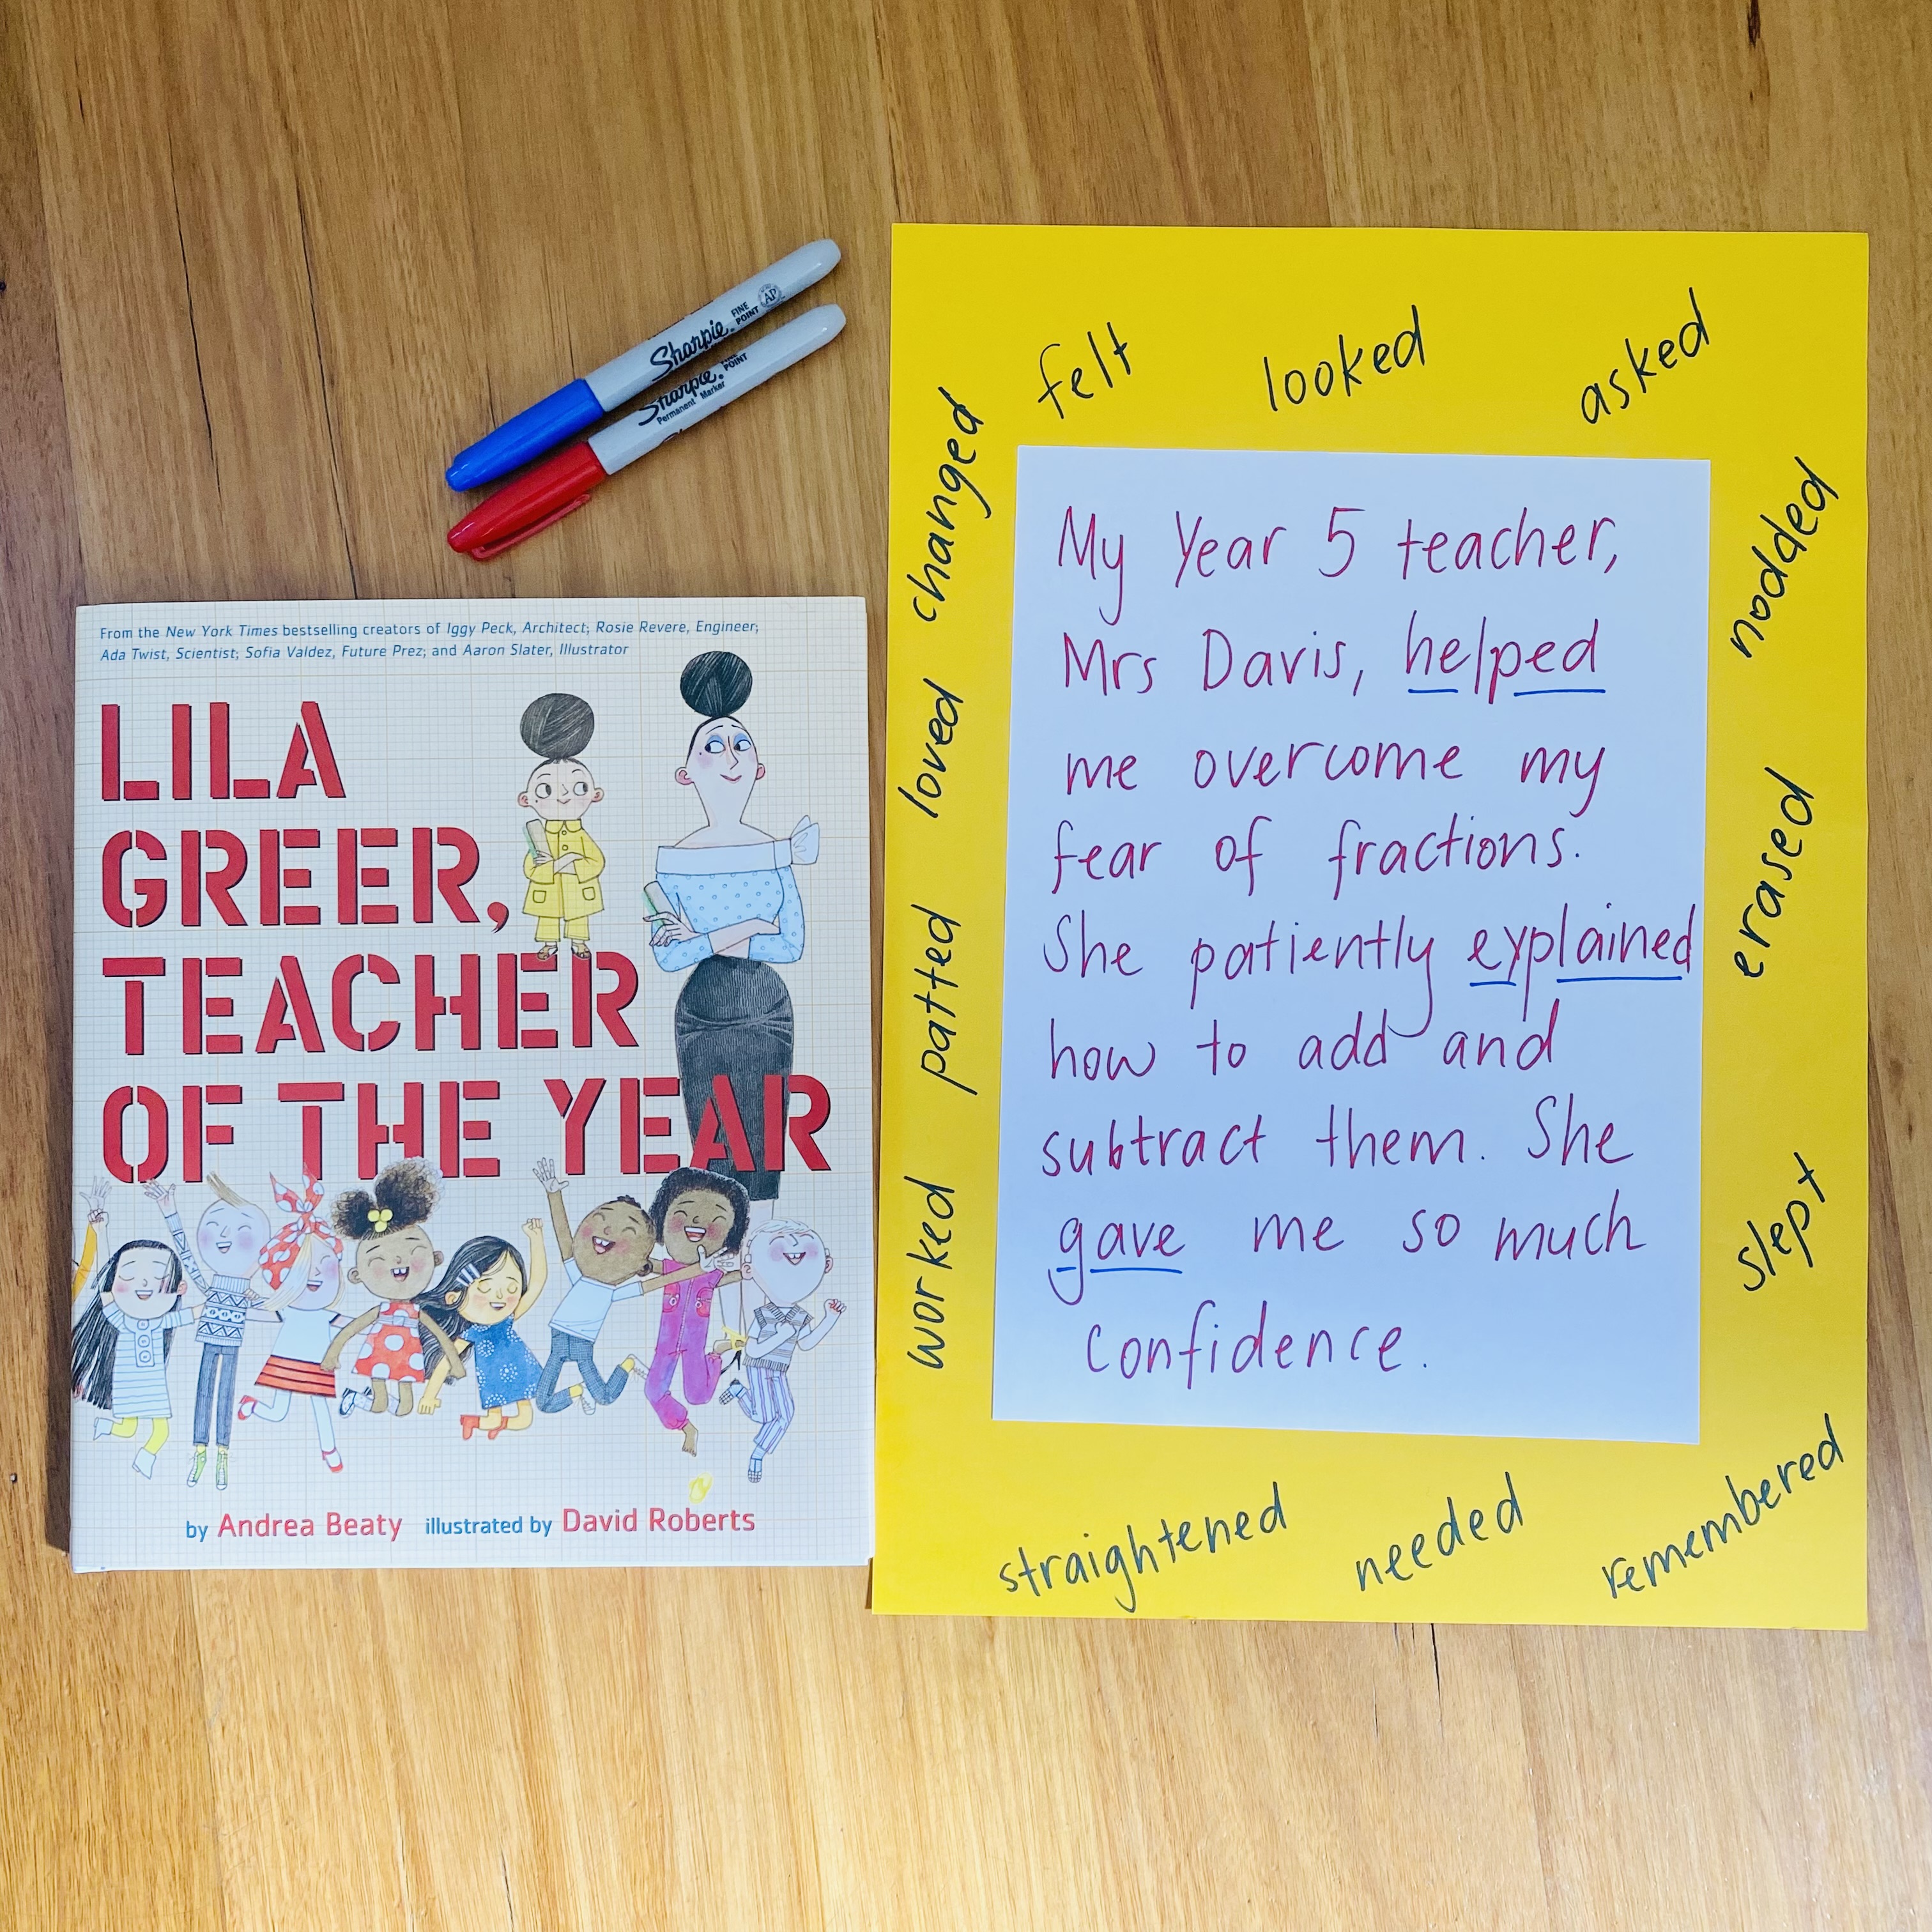 Sharpie
FINE
POINT
AP
Sharpie
POINT
Permanent Marker
From the New York Times bestselling creators of Iggy Peck, Architect; Rosie Revere, Engineer;
Ada Twist, Scientist; Sofia Valdez, Future Prez; and Aaron Slater, Illustrator
LILA
GREER,
TEACHER
OF THE YEAR
by Andrea Beaty illustrated by David Roberts
felt
looked
asked
nodded
erased
slept
remembered
needed
straightened
worked
patted
loved
changed
My Year 5 teacher,
Mrs Davis, helped
me overcome my
fear of fractions.
She patiently explained
how to add and
subtract them. She
gave me so much
confidence.